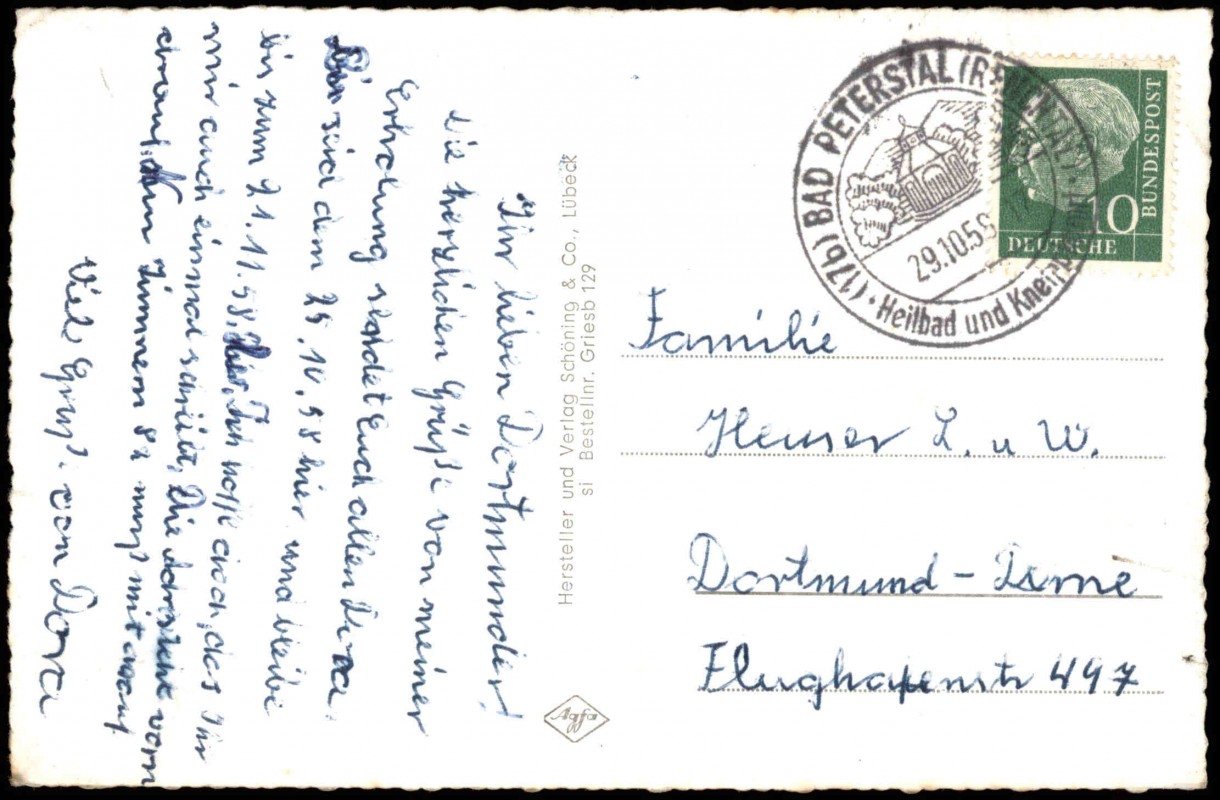 Ihr lieben Dortmunder!
Die herzlichen Grüße von meiner
Erholung sendet Euch allen Dora.
Bin seid dem 25.10.58 hier und bleibe
bis zum 21.11.58. Ich hoffe doch, das Ihr
mir auch einmal schreibt, Die vorn
drauf, Zimmern 82 muß mit drauf
Viele Gruß. von Dora
Hersteller und Verlag Schöning & Co., Lübeck
si Bestellnr. Griesb 129
Agfa
(17b) BAD PETERSTAL (RENCHTAL)
Heilbad und Kneipp
29.10.58
10
DEUTSCHE
BUNDESPOST
Familie
Heuser L. u W.
Dortmund - Derne
Flughafenstr 497